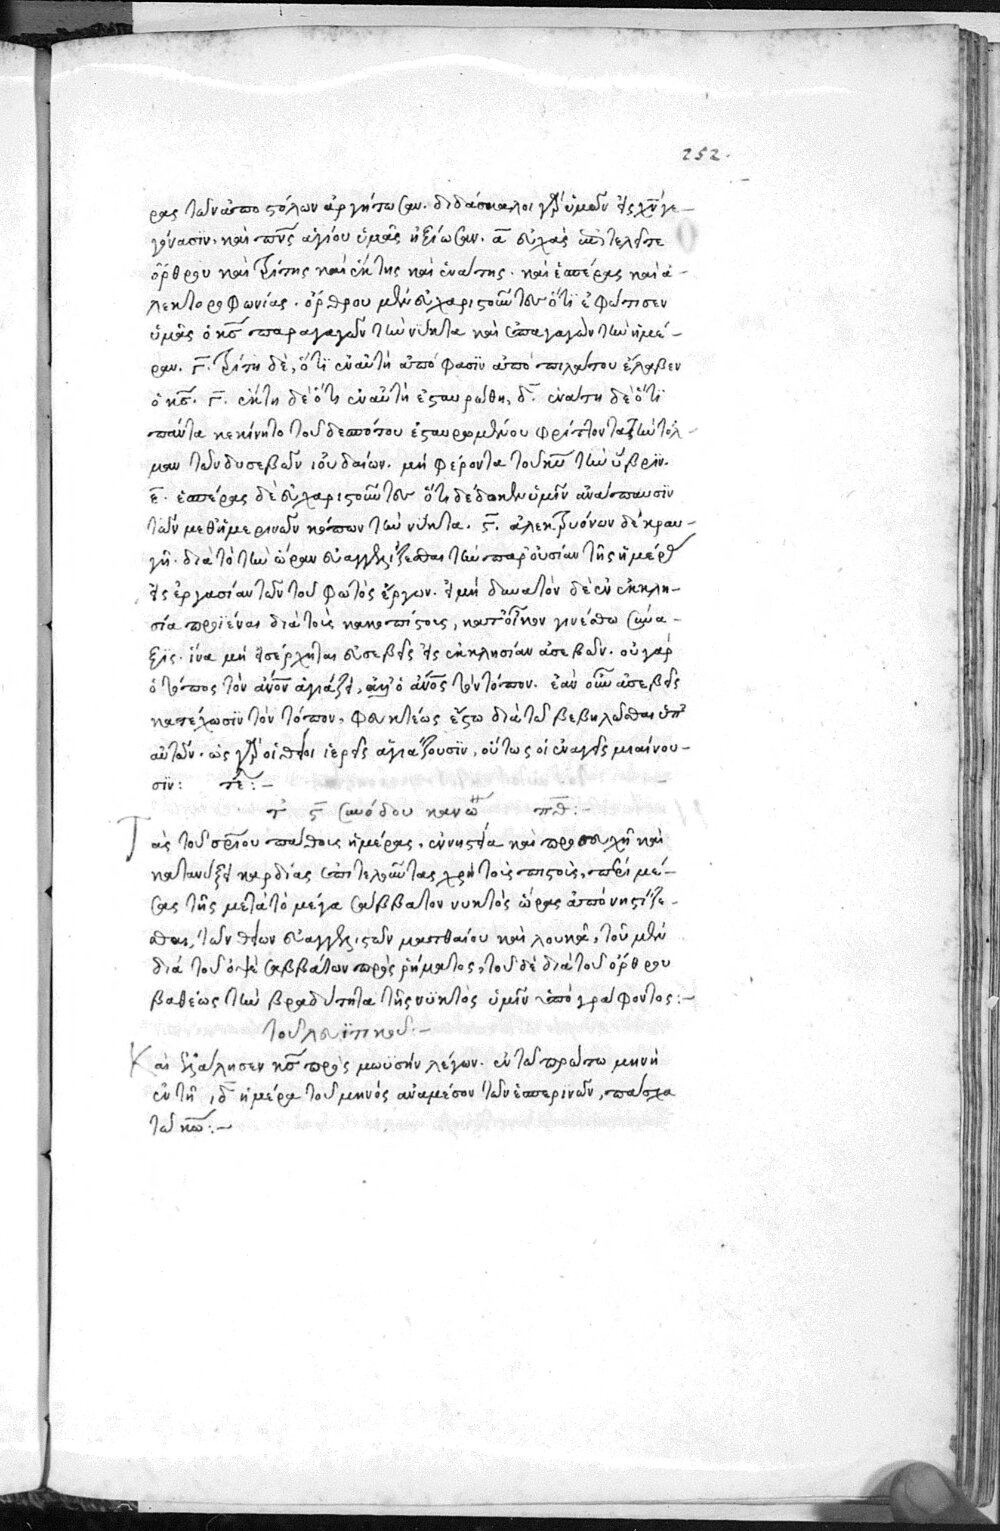 252.
ρας τῶν ἀποστόλων ἀργήτωσαν. διδάσκαλοι γὰρ ὑμῶν εἰς χν̄ γε-
γόνασϊν. καὶ πν̄ς ἁγίου ὑμᾶς ἠξίωσαν. α̅ εὐχὰς ἐπιτελεῖτε
ὄρθρου καὶ τρίτης καὶ ἕκτης καὶ ἐνάτης. καὶ ἑσπέρας καὶ ἀ-
λεκτοροφωνίας. ὄρθρου μὲν εὐχαριστοῦντες ὅτϊ ἐφώτισεν
ὑμᾶς ὁ κς̄ παραγαγὼν τὴν νύκτα καὶ ἐπαγαγὼν τὴν ἡμέ-
ραν. Γ̅. τρίτη δὲ, ὅτϊ ἐν αὐτῆ ἀπόφασϊν ἀπὸ πιλάτου ἔλαβεν
ὁ κς̄. Γ̅. ἕκτη δὲ ὅτι ἐν αὐτῆ ἐσταυρώθη, δ̅. ἐνάτη δὲ ὅτϊ
πάντα κεκίνητο τοῦ δεσπότου ἐσταυρωμένου φρίττοντα τὴν τόλ-
μαν τῶν δυσεβῶν ἰουδαίων. μὴ φέροντα τοῦ κῡ τὴν ὕβριν.
ε̅. ἑσπέρας δὲ εὐχαριστοῦντες ὅτι δέδωκεν ὑμῖν ἀνάπαυσϊν
τῶν μεθημερινῶν κόπων τὴν νύκτα. ς̅. ἀλεκτρυόνων δὲ κραυ-
γῆ. διὰ τὸ τὴν ὥραν εὐαγγελίζεσθαι τὴν παρουσίαν τῆς ἡμέρας
εἰς ἐργασίαν τῶν τοῦ φωτὸς ἔργων. εἰ μὴ δυνατὸν δὲ ἐν ἐκκλη-
σία προϊέναι διὰ τοὺς κακοπίστους, κατ' οἶκον γινέσθω σύνα-
ξις. ἵνα μὴ εἰσέρχηται εὐσεβεῖς εἰς ἐκκλησίαν ἀσεβῶν. οὐ γὰρ
ὁ τόπος τὸν ἄνο̅ν ἁγιάζει, ἀλλ' ὁ ἄνο̅ς τὸν τόπον. ἐὰν οὖν ἀσεβεῖς
κατέχωσϊν τὸν τόπον, φευκτέως ἔξω διὰ τὸ βεβηλῶσθαι ὑπ'
αὐτῶν. ὡς γὰρ οἱ θεῖοι ἱερεῖς ἁγιάζουσϊν, οὕτως οἱ ἐναγεῖς μιαίνου-
σϊν: τέ̅:-
τ ς̅ συνόδου κανὼν πθ̅:-
Τὰς τοῦ σρ̅ίου πάθους ἡμέρας, ἐν νηστεία καὶ προσευχῆ καὶ
κατανύξει καρδίας ἐπιτελοῦντας χρὴ τοὺς πιστοὺς, περὶ μέ-
σας τῆς μετὰ τὸ μέγα σάββατον νυκτὸς ὥρας ἀπονηστίζε-
σθαι, τῶν θείων εὐαγγελιστῶν ματθαίου καὶ λουκᾶ, τοῦ μὲν
διὰ τοῦ ὀψὲ σαββάτων προσρήματος, τοῦ δὲ διὰ τοῦ ὄρθρου
βαθέως τὴν βραδυτῆτα τῆς νυκτὸς ὑμῖν ὑπογράφοντος:-
τοῦ λευϊτικοῦ:-
Καὶ ἐλάλησεν κς̄ πρὸς μωϋσὴν λέγων. ἐν τῶ πρώτω μηνὶ
ἐν τῆ ιδ̅ ἡμέρα τοῦ μηνὸς ἀναμέσον τῶν ἑσπερινῶν, πάσχα
τῶ κω̅:-